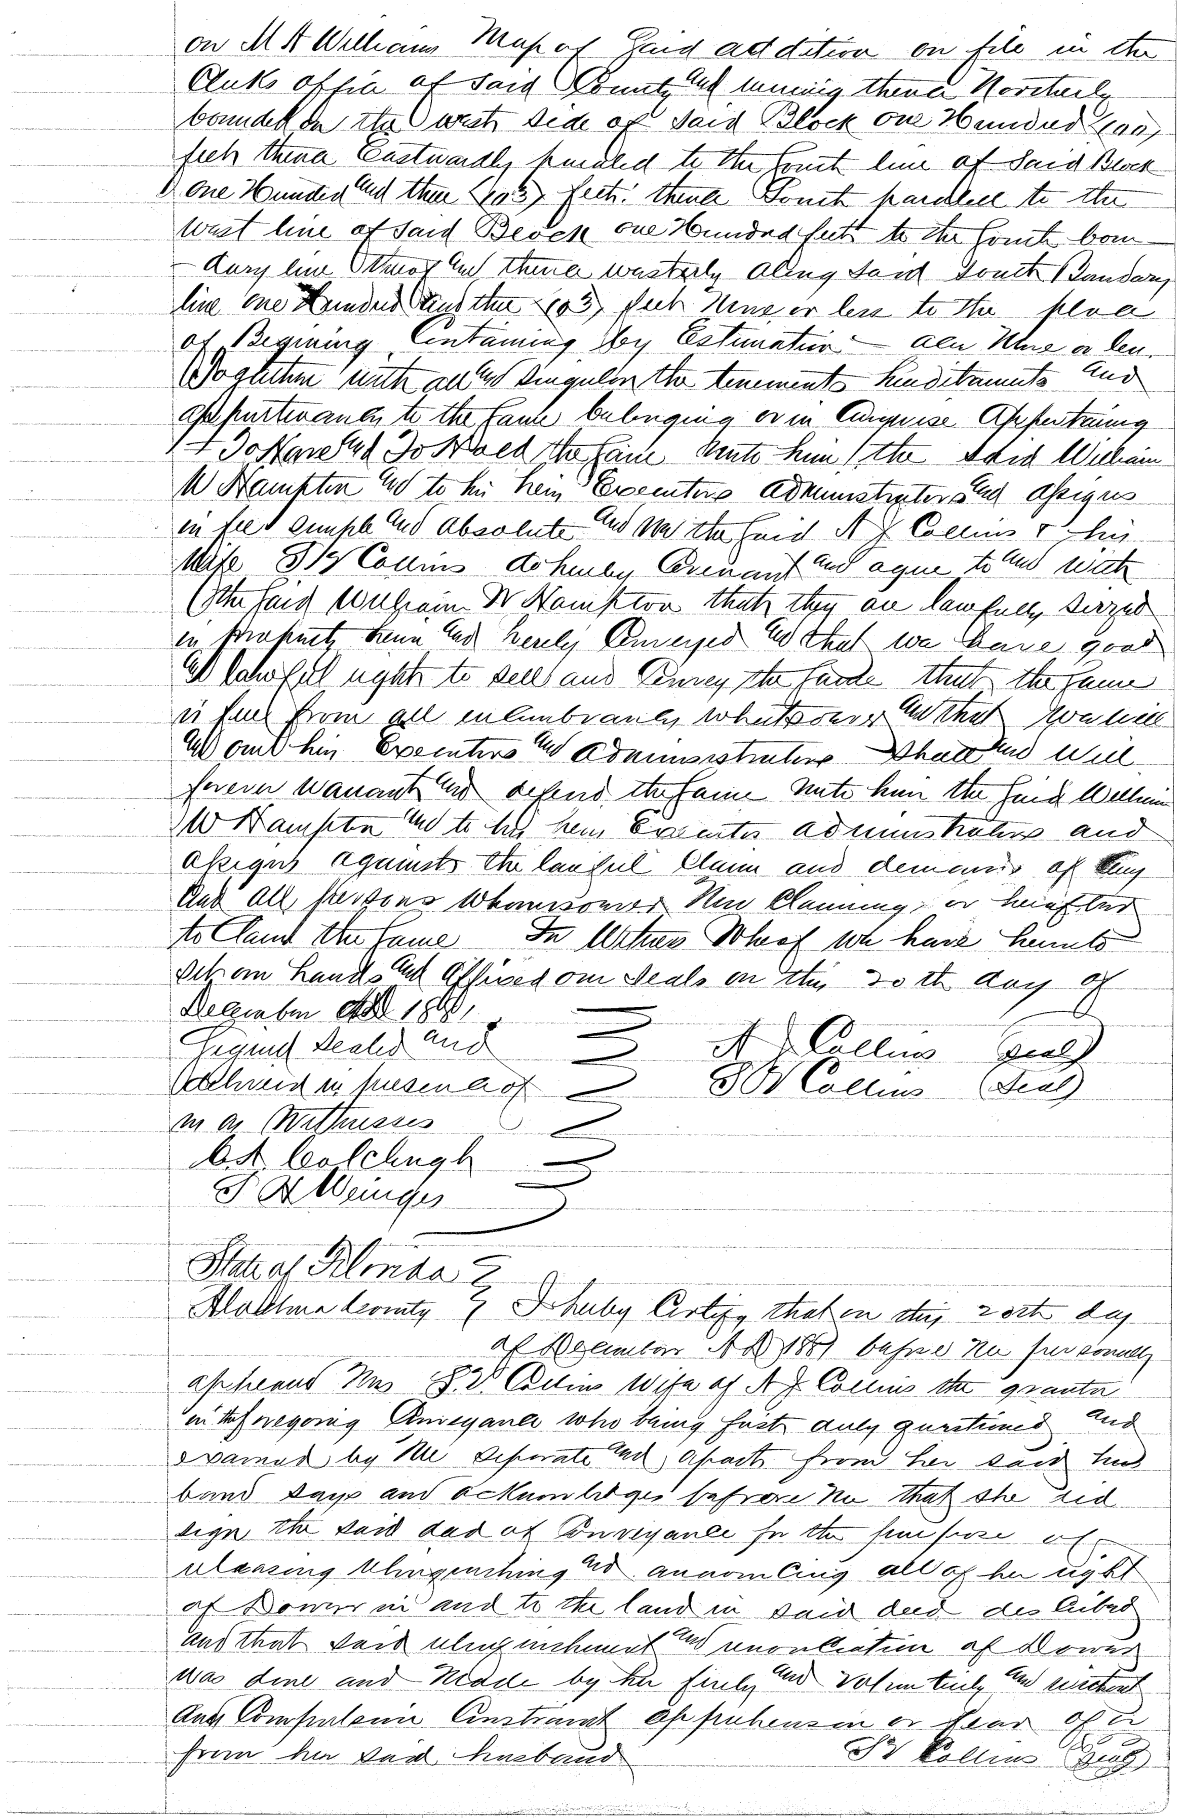 on M A Williams Map of Said addition on file in the
Clerks office of said County and running thence Northerly
bounded on the west side of said Block one Hundred (100)
feet thence Eastwardly paraled to the South line of Said Block
one Hundred and three (103) feet thence South paralell to the
west line of said Block one Hundred feet to the South boun
dary line thereof and thence westerly along said South Boundary
line one Hundred and three (103) feet More or less to the place
of Begining Containing by Estimation — acre More or less.
Together with all and singular the tenements hereditaments and
appurtenances to the same belonging or in Anywise Appertaining
To Have and To Hold the same unto him the said William
W Hampton and to his heirs Executors administrators and assigns
in fee simple and absolute and we the said A J Collins & his
wife S V Collins do hereby Covenant and agree to and with
the said William W Hampton that they are lawfully seized
in property herein and hereby Conveyed and that we have good
and lawful right to sell and Convey the same that the same
is free from all incumbrances whatsoever and that we will
and our heirs Executors and administrators shall and will
forever warrant and defend the same unto him the said William
W Hampton and to his heirs Executors administrators and
assigns against the lawful Claim and demands of any
and all persons whomsoever Now Claiming, or hereafter
to Claim the same In Witness Whereof we have hereunto
set our hands and affixed our seals on this 20th day of
December AD 1881,
Signed Sealed and A J Collins (seal)
delivered in presence of S V Collins (seal)
us as Witnesses
C A Colclough
S H Weinges
State of Florida
Alachua County I hereby Certify that on this 20th day
of December A D 1881 before Me personally
appeared Mrs S. V. Collins wife of A J Collins the grantor
in the foregoing Conveyance who being first duly questioned and
examined by Me separate and apart from her said hus
band says and acknowledges before me that she did
sign the said deed of Conveyance for the purpose of
releasing relinquishing and renouncing all of her right
of Dower in and to the land in said deed described
and that said relinquishment and renonciation of Dower
was done and Made by her freely and voluntarily and without
any Compulsion Constraint apprehension or fear of or
from her said husband S V Collins (seal)